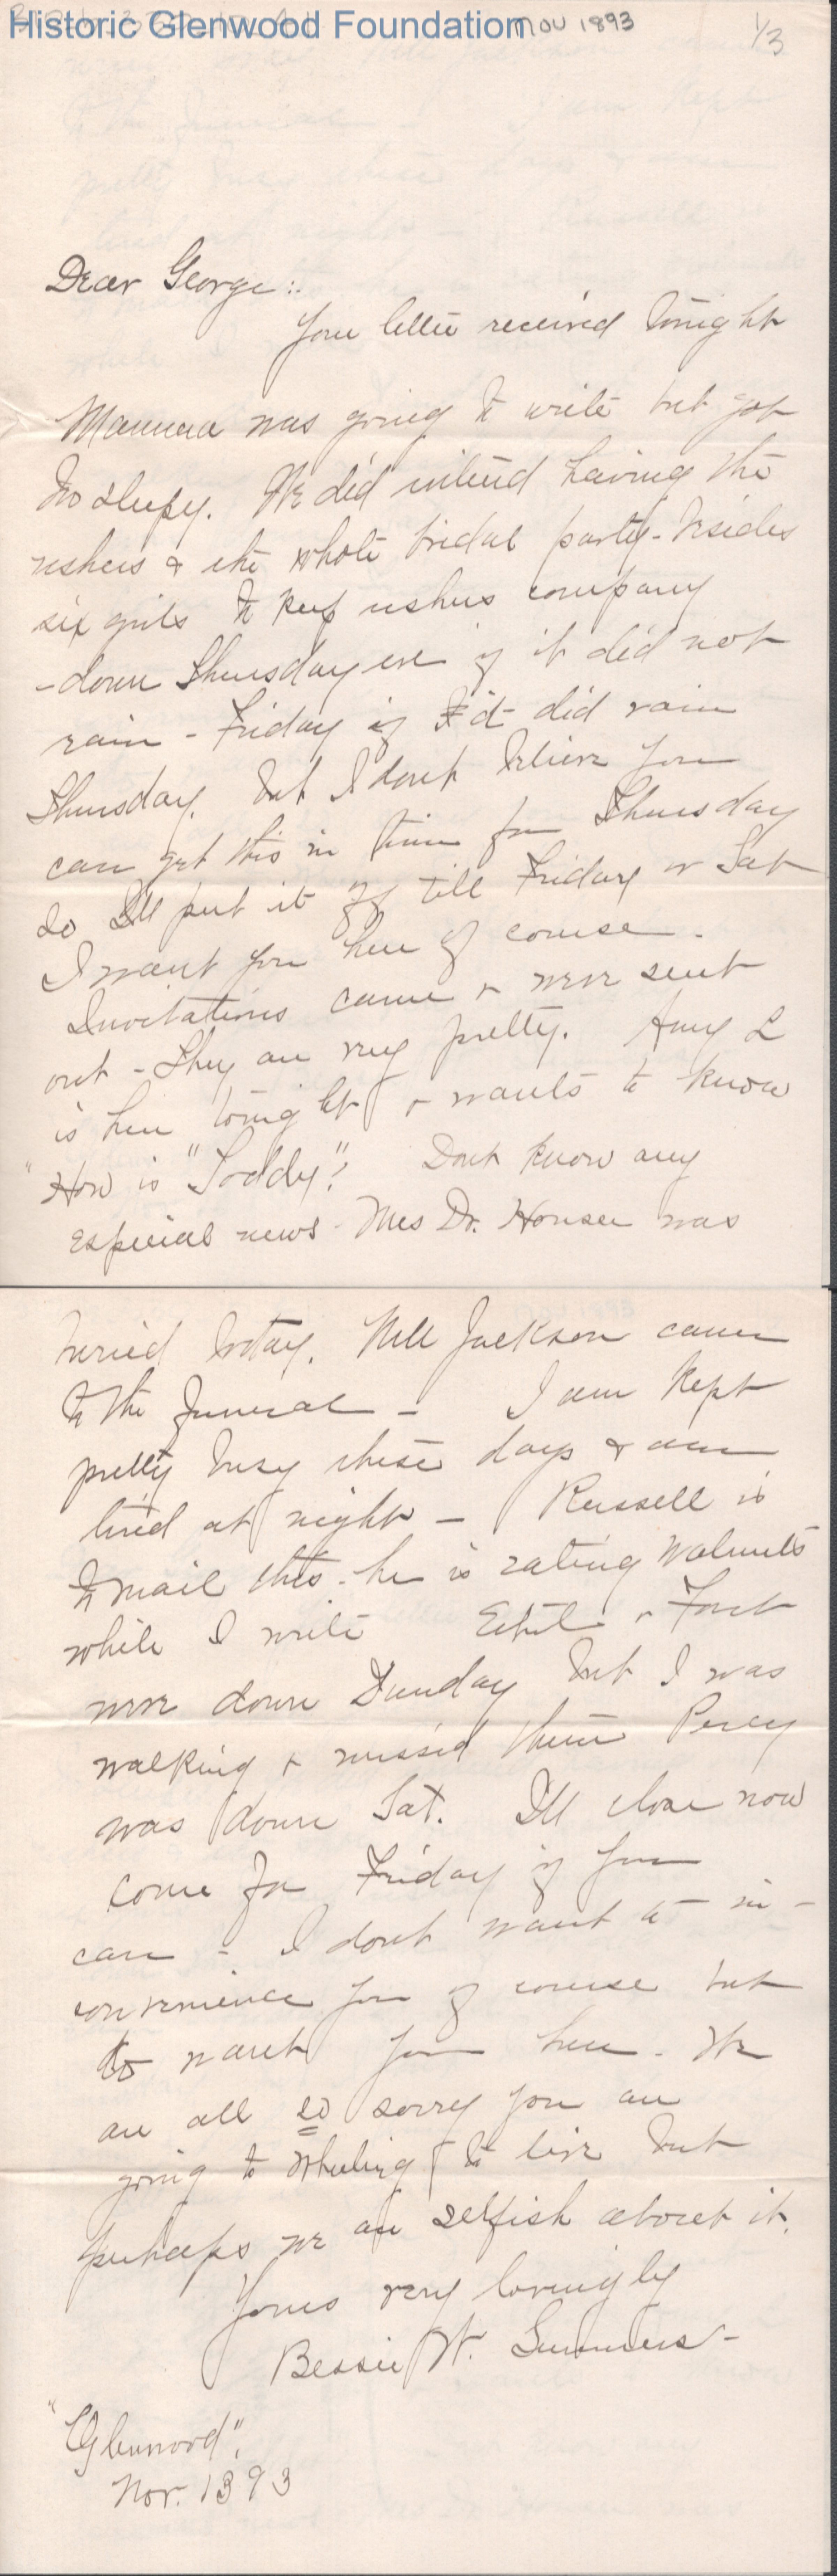 Historic Glenwood Foundation
Nov 1893
1/3
Dear George:.
Your letter received tonight
Mamma was going to write but got
too sleepy. We did intend having the
ushers & the whole bridal party - besides
six girls to keep ushers company
- down Thursday eve if it did not
rain - Friday if it did rain
Thursday. but I dont believe you
can get this in time for Thursday
so I'll put it off till Friday or Sat
I want you here of course -
Invitations came & were sent
out - They are very pretty. Amy L
is here tonight & wants to know
"How is "Toddy"? Dont know any
especial news - Mrs Dr. Houser was
buried today. Nell Jackson came
to the funeral - I am kept
pretty busy these days & am
tired at night - Russell is
to mail this - he is eating walnuts
while I write Ethel &
were down Sunday but I was
walking & missed them Percy
was down Sat. I'll close now
come for Friday if you
can - I dont want to in-
convenience you of course but
do want you here - We
are all so sorry you are
going to Wheeling to live but
perhaps we are selfish about it.
Yours very lovingly
Bessie W. Summers -
"Glenwood".
Nov. 1893